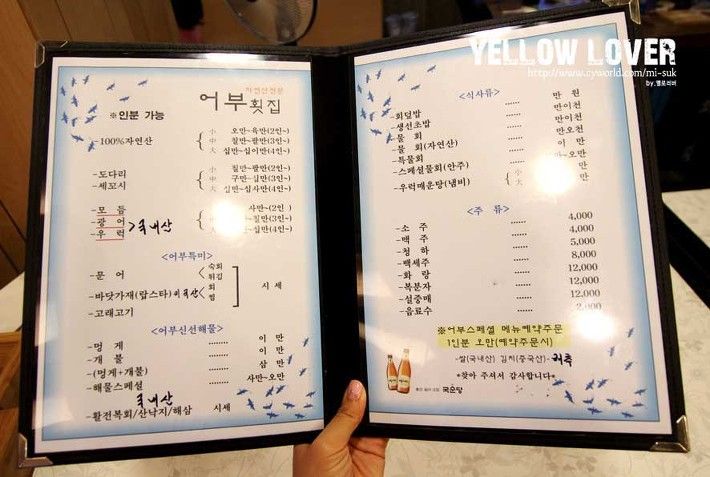 YELLOW LOVER
http://www.cyworld.com/mi-suk
by.옐로러버
자연산전문
어부횟집
※인분 가능
-100%자연산
小 오만~육만(2인~)
中 칠만~팔만(3인~)
大 십만~십이만(4인~)
-도다리
-세꼬시
小 칠만~팔만(2인~)
中 구만~십만(3인~)
大 십만~십사만(4인~)
-모 듬
-광 어 > 국내산
-우 럭
小 사만~(2인)
中 ~칠만(3인~)
大 ~십만(4인~)
<어부특미>
-문 어 < 숙회 튀김
-바닷가재(랍스타) < 회 찜
시 세
-고래고기
<어부신선해물>
-멍 게 ...... 이 만
-개 불 ...... 이 만
-(멍게+개불) ...... 삼 만
-해물스페셜 ...... 사만~오만
국내산
-활전복회/산낙지/해삼 시세
<식사류>
-회덮밥 ...... 만 원
-생선초밥 ...... 만이천
-물 회 ...... 만이천
-물 회(자연산) ...... 만오천
-특물회 ...... 이 만
-스페셜물회(안주) ...... 만~오만
-우럭매운탕(냄비) 小 만
大 만
<주 류>
-소 주 ...... 4,000
-맥 주 ...... 4,000
-청 하 ...... 5,000
-백세주 ...... 8,000
-화 랑 ...... 12,000
-복분자 ...... 12,000
-설중매 ...... 12,000
-음료수 ...... 2,000
※어부스페셜 메뉴예약주문
1인분 오만(예약주문시)
-쌀(국내산) 김치(중국산)
*찾아 주셔서 감사합니다*
국순당